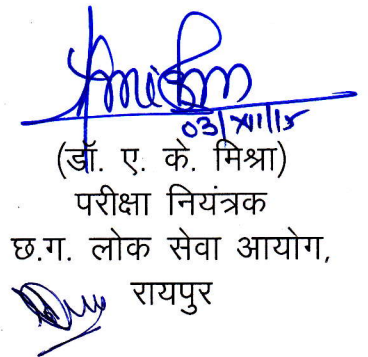 03/XII/15
(डॉ. ए. के. मिश्रा)
परीक्षा नियंत्रक
छ.ग. लोक सेवा आयोग,
रायपुर